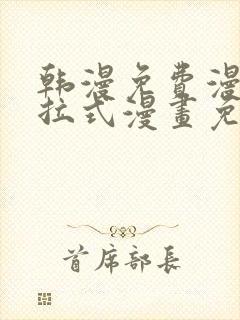 韩漫免费漫
拉式漫畫免
首席部長